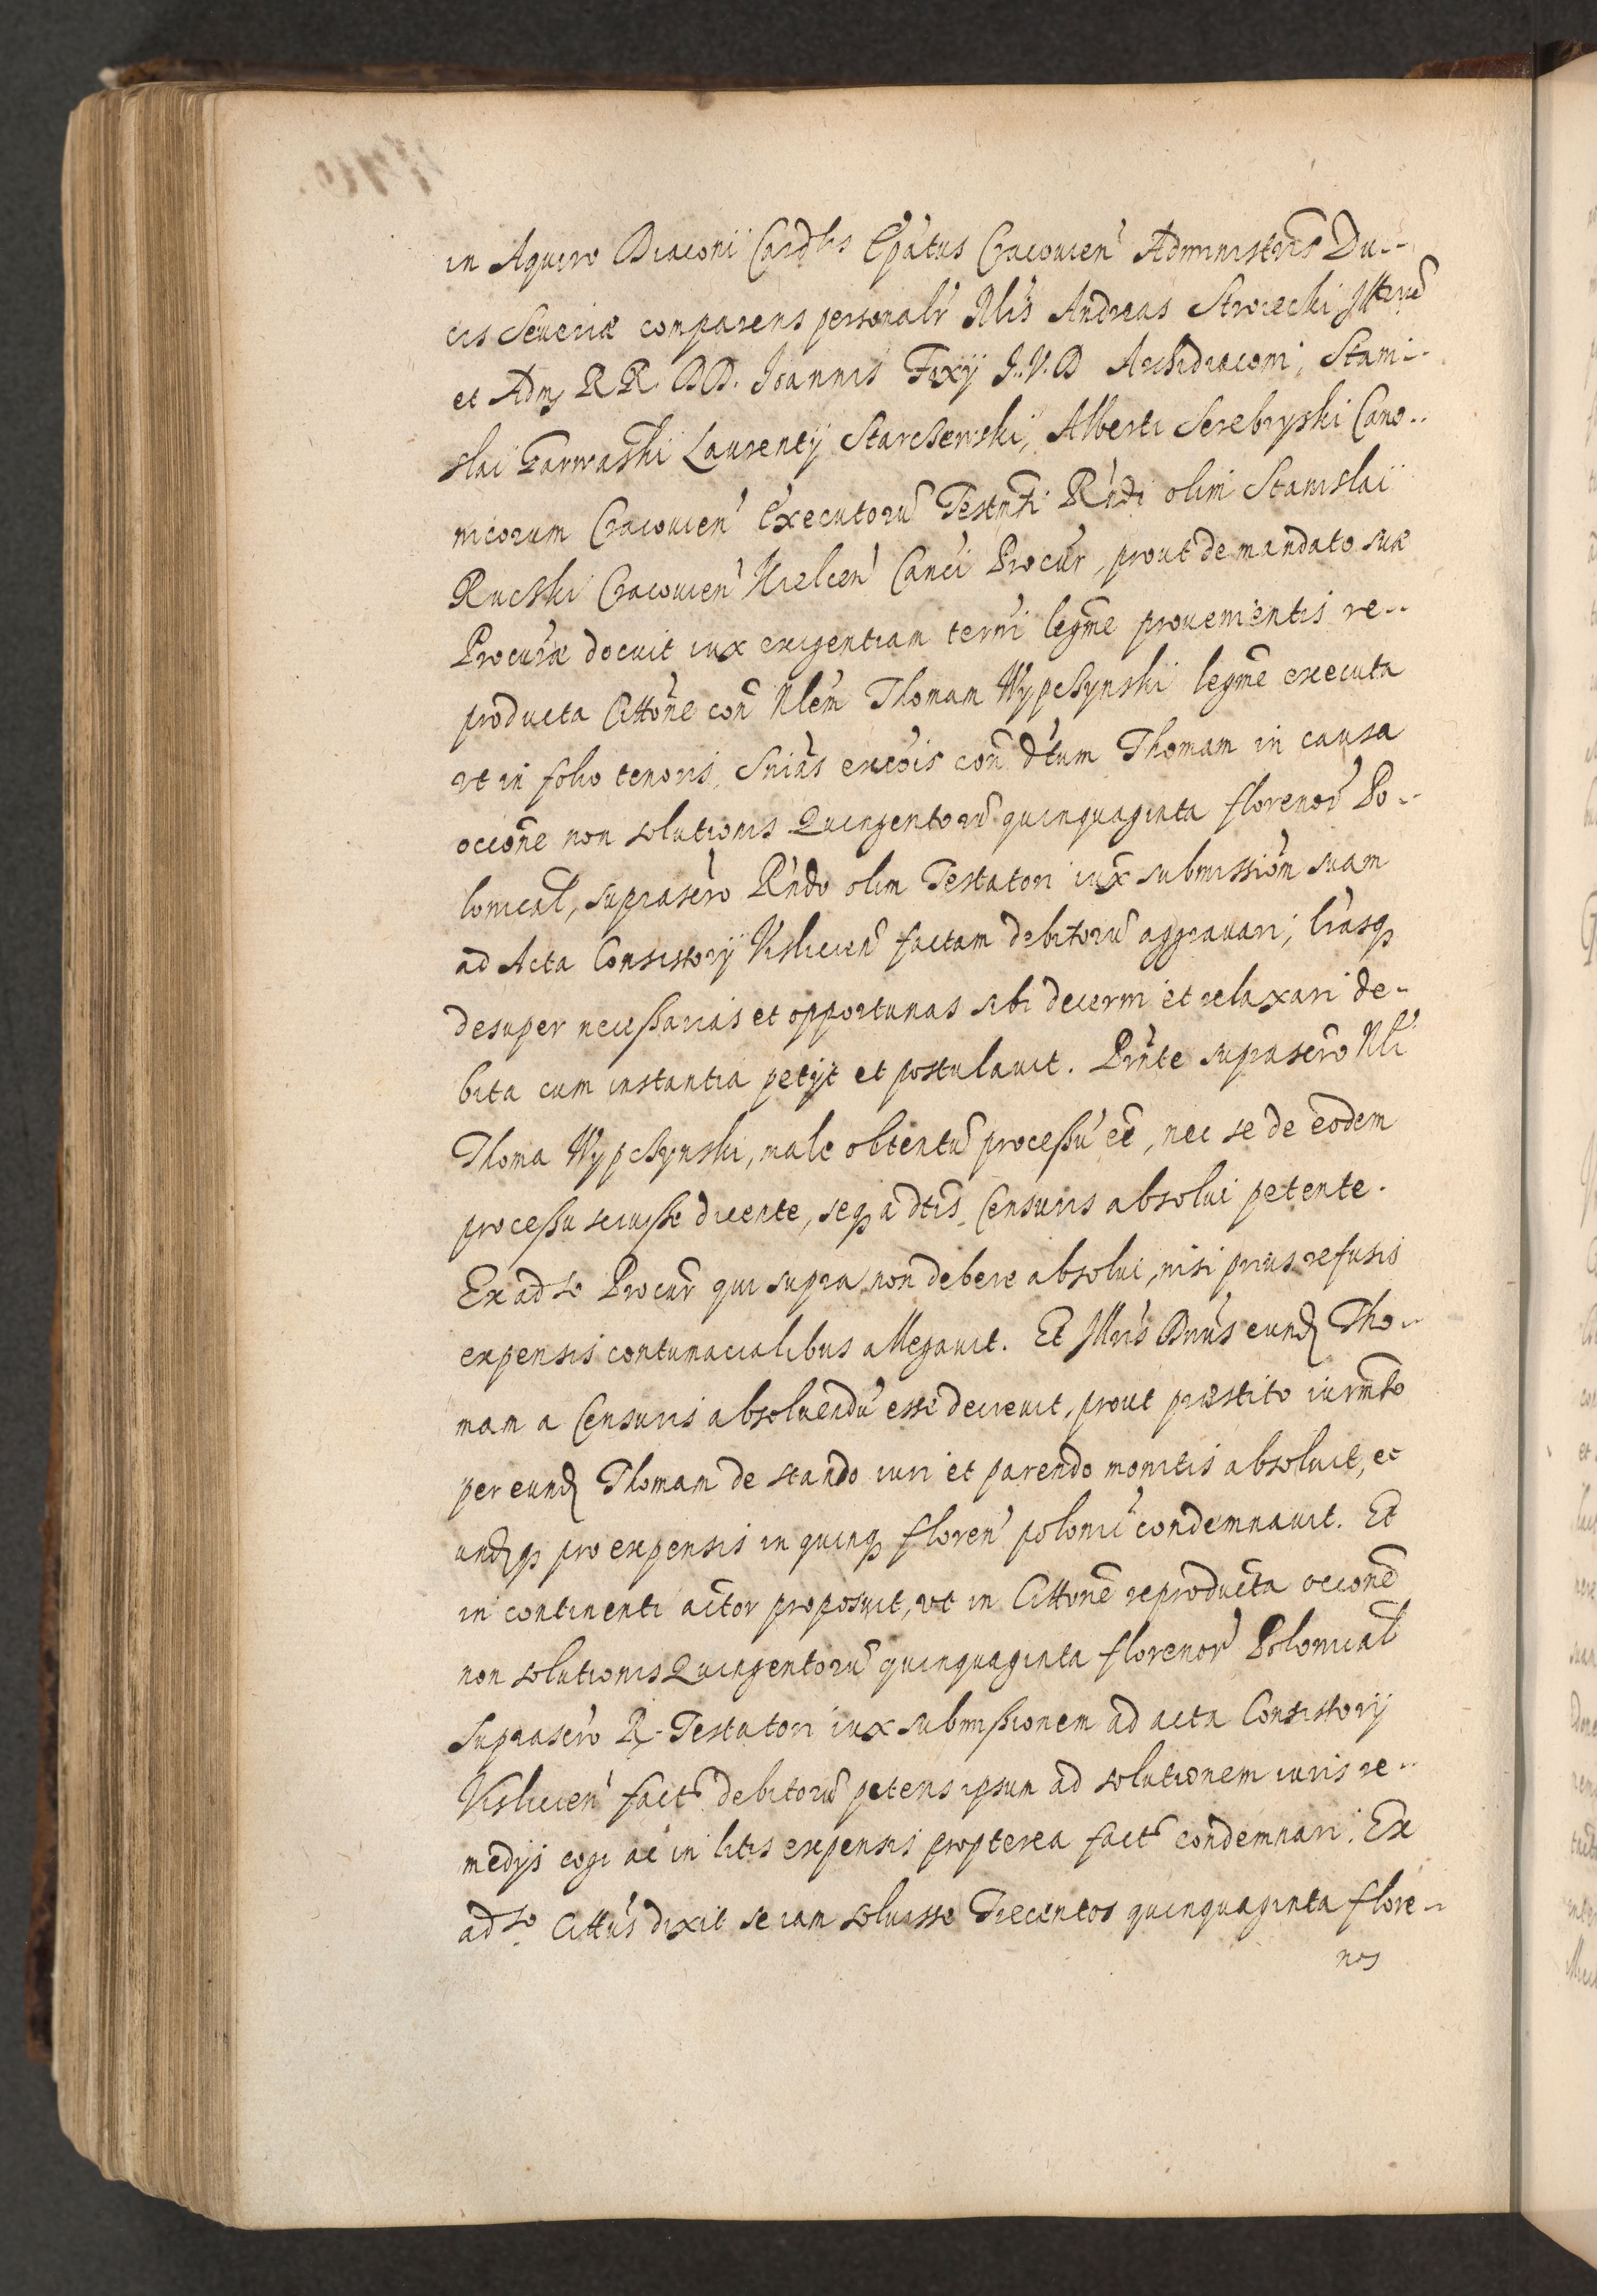 in Aquiro Diaconi Cardlis Epātus Cracouien̄ Administris Du-
cis Seueriæ comparens personalr̄ Nlis Andreas Stroiecki Illrium
et Adm RR. DD. Joannis Foxij J.V.D Archidiaconi, Stani-
slai Garwaski Laurentij Starczewski, Alberti Serebryski Cano-
nicorum Cracouien̄ Executorū Testm̄ti Rn̄di olim Stanislai
Rucski Cracouien̄ Kielcen̄ Canci Procur̄, prout de mandato suæ
Procuræ docuit iux exigentiam termi legm̄e prouenientis re-
producta Citt̄one con̄ Nlem Thomam Wypczynski legm̄e executa
vt in folio tenoris, Sn̄ias exc̄ois con̄ dt̄um Thomam in causa
occōne non solutionis Quingentorū quinquaginta florenor̄ Po-
lonical, suprascr̄o Rn̄do olim Testatori iux submissiōm suam
ad Acta Consistorij Vislicien̄ factam debitorū aggrauari, lr̄asq
desuper necessarias et opportunas sibi decerni et relaxari de-
bita cum instantia petijt et postulauit. Prn̄te suprascr̄o Nli
Thoma Wypczynski, male obtentū processū eē, nec se de eodem
processu sciuisse dicente, seq a dtis Censuris absolui petente.
Ex adso Procur̄ qui supra non debere absolui, nisi prius refusis
expensis contumacialibus allegauit. Et Illris Dnus eund Tho-
mam a Censuris absoluendū esse decreuit, prout præstito iurm̄to
per eund Thomam de stando iuri et parendo monitis absoluit, et
undq pro expensis in quinq floren̄ polonic̄ condemnauit. Et
in continenti actor proposuit, vt in Citt̄one reproducta occōne
non solutionis Quingentorū quinquaginta florenor̄ Polonical
suprascr̄o R. Testatori iux submissionem ad acta Consistorij
Vislicien̄ fact debitorū petens ipsum ad solutionem iuris re-
medijs cogi ac in litis expensis propterea fact condemnari. Ex
adso Citt̄us dixit se iam soluisse Trecentos quinquaginta flore-
nos